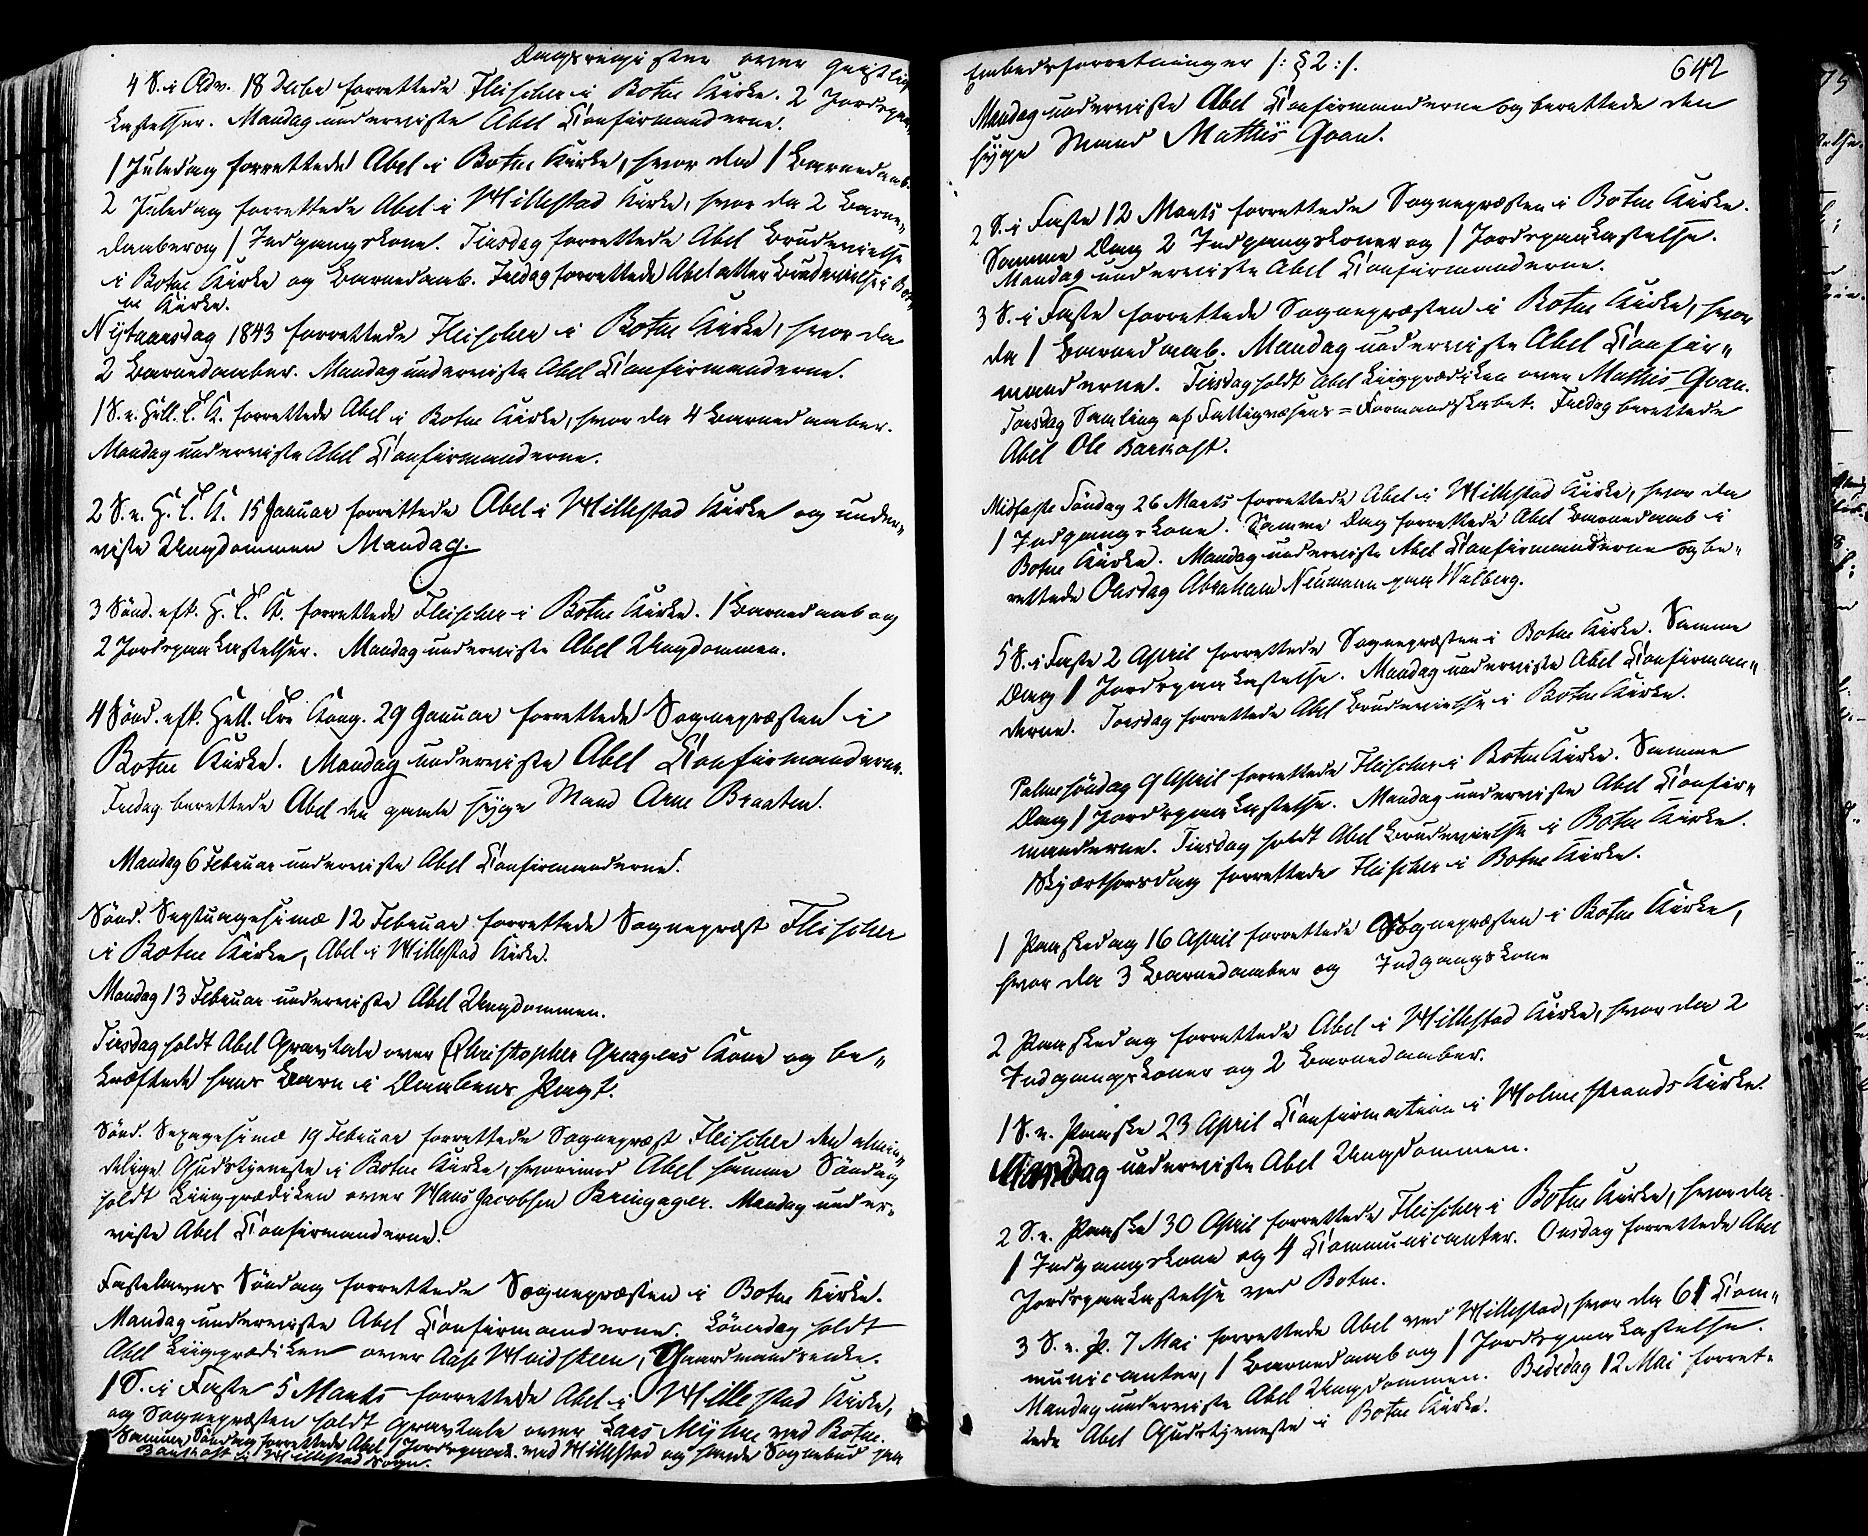 Dagsregister over Geistlige
4 S. i Adv. 18 Decbr forrettede Fleischer i Botne Kirke. 2 Jordspaa-
kastelser. Mandag underviste Abel Confirmanderne.
1 Juledag forrettede Abel i Botne Kirke, hvor da 1 Barnedaab.
2 Juledag forrettede Abel i Hillestad Kirke, hvor da 2 Barne-
daaber og 1 Indgangskone. Tirsdag forrettede Abel Brudevielse
i Botne Kirke og Barnedaab. Fredag forrettede Abel atter Brudevielse i Bot-
ne Kirke.
Nytaarsdag 1843 forrettede Fleischer i Botne Kirke, hvor da
2 Barnedaaber. Mandag underviste Abel Confirmanderne.
1 S. e. Hell. 3 K. forrettede Abel i Botne Kirke, hvor da 4 Barnedaaber.
Mandag underviste Abel Confirmanderne.
2 S. e. H. 3 K. 15 Januar forrettede Abel i Hillestad Kirke og under-
viste Ungdommen Mandag.
3 Sönd. eft. H. 3 K. forrettede Fleischer i Botne Kirke. 1 Barnedaab og
2 Jordspaakastelser. Mandag underviste Abel Ungdommen.
4 Sönd. eft. Hell. tre Kong. 29 Januar forrettede Sognepræsten i
Botne Kirke. Mandag underviste Abel Confirmanderne.
Fredag berettede Abel den gamle syge Mand Arne Braaten.
Mandag 6 Februar underviste Abel Confirmanderne.
Sönd. Septuagesimæ 12 Februar forrettede Sognepræst Fleischer
i Botne Kirke, Abel i Hillestad Kirke.
Mandag 13 Februar underviste Abel Ungdommen.
Tirsdag holdt Abel Gravtale over Christopher Greagers Kone og be-
kræftede hans Barn i Daabens Pagt.
Sönd. Sexagesimæ 19 Februar forrettede Sognepræst Fleischer den almin-
delige Gudstjeneste i Botne Kirke, hvorimod Abel samme Söndag
holdt Liigprædiken over Hans Jacobsen Bringager. Mandag under-
viste Abel Confirmanderne.
Fastelavns Söndag forrettede Sognepræsten i Botne Kirke.
Mandag underviste Abel Confirmanderne. Löverdag holdt
Abel Liigprædiken over Aase Hvidsteen, Gaardmandsenke.
1 S. i Faste 5 Marts forrettede Abel i Hillestad Kirke,
og Sognepræsten holdt Gravtale over Lars Myhre ved Botne.
Samme Söndag forrettede Abel 1 Jordspaak. ved Hillestad og havde Sognebud paa
i Hillestad Sogn.
Embedsforretninger /: § 2 :/. 642
Mandag underviste Abel Confirmanderne og berettede den
syge Mand Mathis Goan.
2 S. i Faste 12 Marts forrettede Sognepræsten i Botne Kirke.
Samme Dag 2 Indgangskoner og 1 Jordspaakastelse.
Mandag underviste Abel Confirmanderne.
3 S. i Faste forrettede Sognepræsten i Botne Kirke, hvor
da 1 Barnedaab. Mandag underviste Abel Confir-
manderne. Tirsdag holdt Abel Liigprædiken over Mathis Goan.
Torsdag Samling af Fattigvæsens=Formandskabet. Fredag berettede
Abel Ole Barskost.
Midfaste Söndag 26 Marts forrettede Abel i Hillestad Kirke, hvor da
1 Indgangskone. Samme Dag forrettede Abel Barnedaab i
Botne Kirke. Mandag underviste Abel Confirmanderne og be-
rettede Onsdag Abraham Neumann paa Walberg.
5 S. i Faste 2 April forrettede Sognepræsten i Botne Kirke. Samme
Dag 1 Jordspaakastelse. Mandag underviste Abel Confirman-
derne. Torsdag forrettede Abel Brudevielse i Botne Kirke.
Palmesöndag 9 April forrettede Fleischer i Botne Kirke. Samme
Dag 1 Jordspaakastelse. Mandag underviste Abel Confir-
manderne. Tirsdag holdt Abel Brudevielse i Botne Kirke.
Skjærthorsdag forrettede Fleischer i Botne Kirke.
1 Paaskedag 16 April forrettede Sognepræsten i Botne Kirke,
hvor da 3 Barnedaaber og Indgangskone
2 Paaskedag forrettede Abel i Hillestad Kirke, hvor da 2
Indgangskoner og 2 Barnedaaber.
1 S. e. Paaske 23 April Confirmation i Holmestrands Kirke.
Mandag underviste Abel Ungdommen.
2 S. e. Paaske 30 April forrettede Fleischer i Botne Kirke, hvor da
1 Indgangskone og 4 Communicanter. Onsdag forrettede Abel
Jordspaakastelse ved Botne.
3 S. e. P. 7 Mai forrettede Abel ved Hillestad, hvor da 61 Com-
municanter, 1 Barnedaab og 1 Jordspaakastelse.
Mandag underviste Abel Ungdommen. Bededag 12 Mai forret-
tede Abel Gudstjeneste i Botne Kirke.